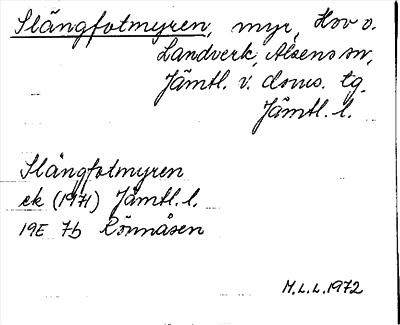 Slängfotmyren, myr, Hov o.
Landverk, Alsens sn,
Jämtl. v. doms. tg.
Jämtl. l.
Slängfotmyren
ek (1971) Jämtl. l.
19E 7b Rönnåsen
M.L.L. 1972